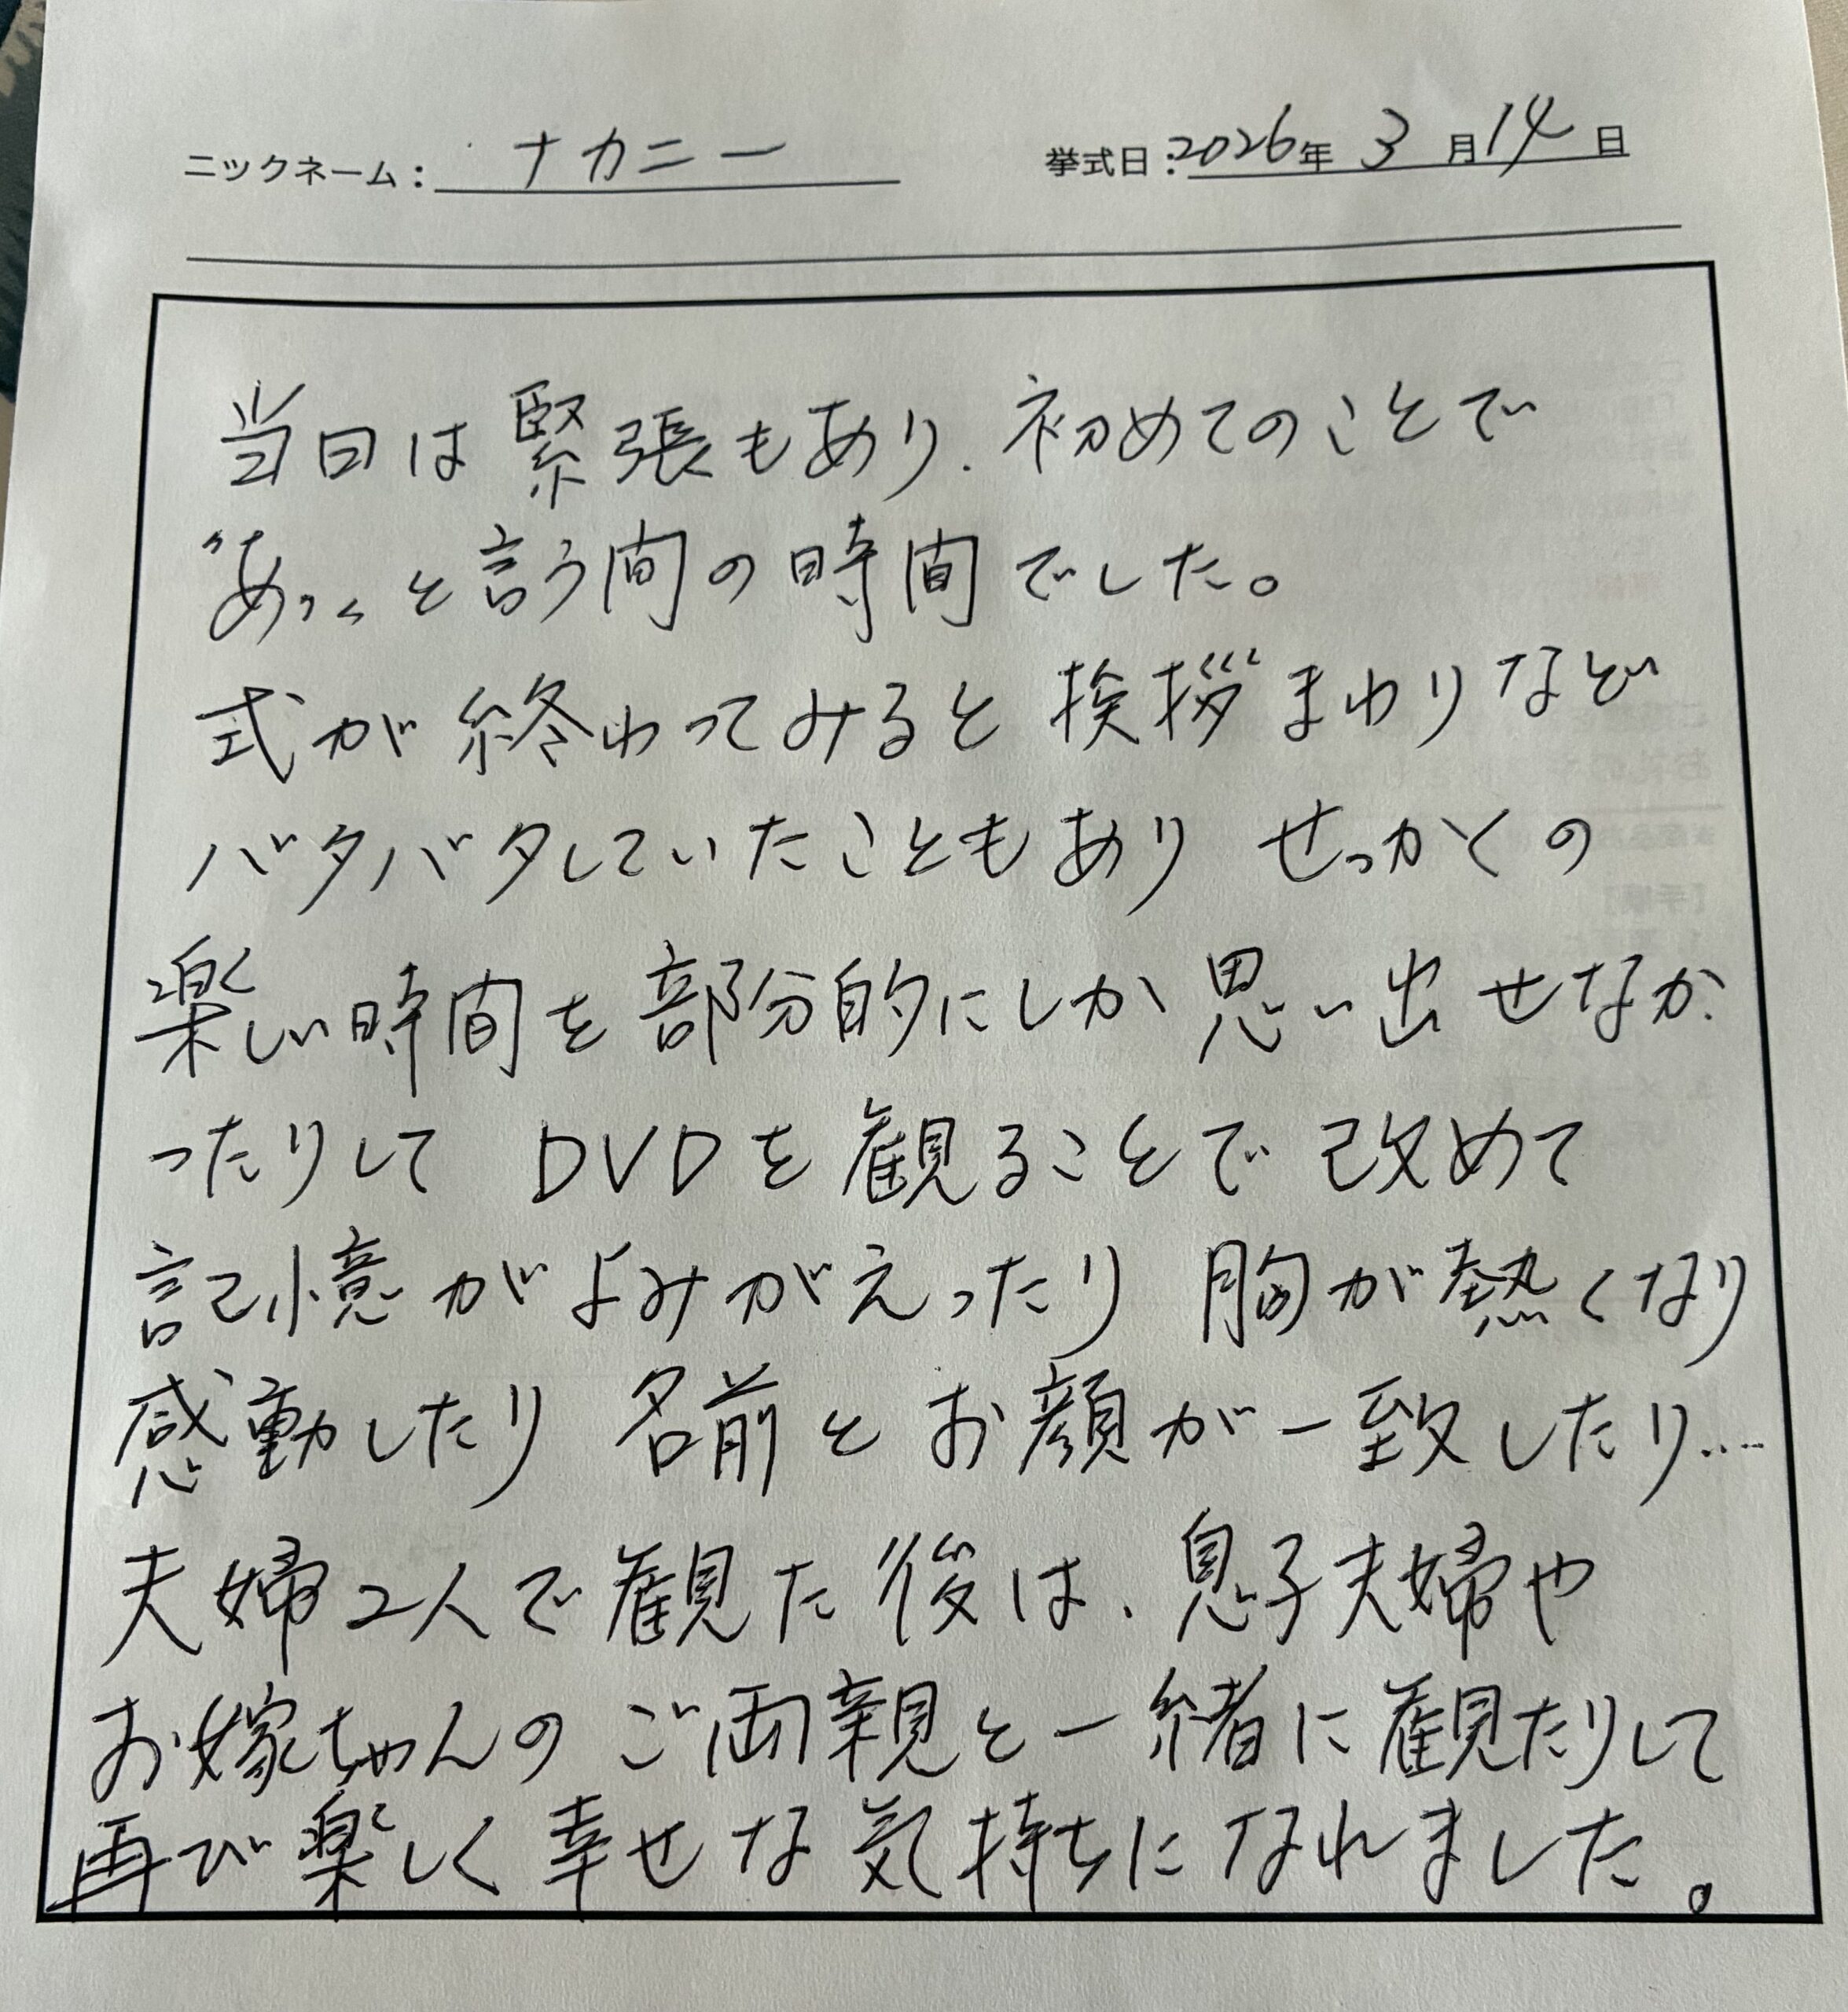 ニックネーム: ナカニー 挙式日:2026年 3月14日
当日は緊張もあり、初めてのことで
“あっ„と言う間の時間でした。
式が終わってみると挨拶まわりなど
バタバタしていたこともあり せっかくの
楽しい時間を部分的にしか思い出せなか
ったりして DVDを観ることで改めて
記憶がよみがえったり 胸が熱くなり
感動したり 名前とお顔が一致したり....
夫婦2人で観た後は、息子夫婦や
お嫁ちゃんのご両親と一緒に観たりして
再び楽しく幸せな気持ちになれました。